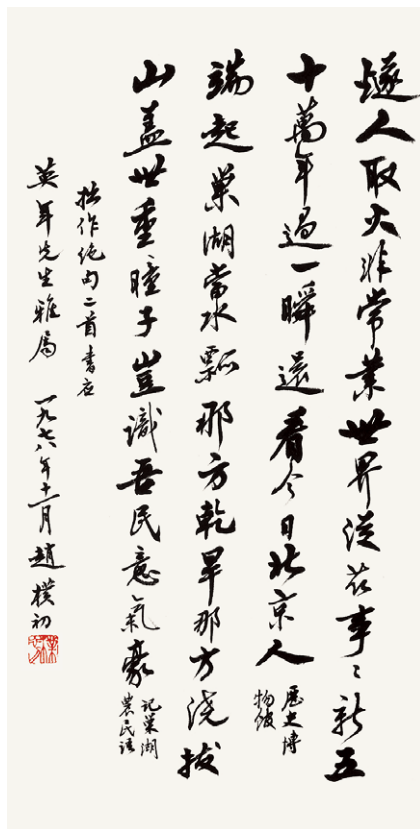 燧人取火非常業世界從茲事〻新五
十萬年過一瞬還看今日北京人
歷史博
物館
端起巢湖當水瓢那方乾旱那方澆拔
山蓋世重瞳子豈識吾民意氣豪
記巢湖
農民語
拙作絕句二首書应
英年先生雅屬 一九七八年十一月 趙樸初